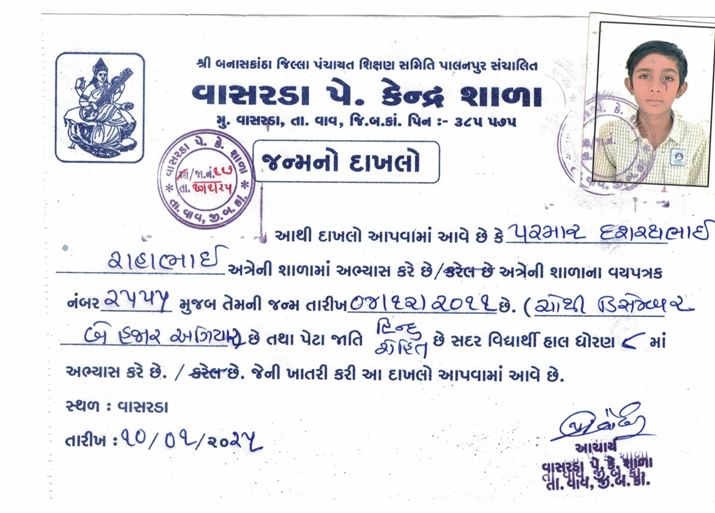 શ્રી બનાસકાંઠા જિલ્લા પંચાયત શિક્ષણ સમિતિ પાલનપુર સંચાલિત
વાસરડા પે. કેન્દ્ર શાળા
મુ. વાસરડા, તા. વાવ, જિ.બ.કાં. પિન :- ૩૮૫ ૫૭૫
વાસરડા પે. કે. શાળા
તા. વાવ, જી. બ. કાં.
જન્મનો દાખલો
આથી દાખલો આપવામાં આવે છે કે પરમાર દશરથભાઈ
અત્રેની શાળામાં અભ્યાસ કરે છે/કરેલ છે અત્રેની શાળાના વયપત્રક
નંબર ૨૫૫૫ મુજબ તેમની જન્મ તારીખ ૦૪/૧૨/૨૦૧૧ છે. (ચોથી ડિસેમ્બર
બે હજાર અગિયાર) છે તથા પેટા જાતિ હિન્દુ રોહિત છે સદર વિદ્યાર્થી હાલ ધોરણ ૮ માં
અભ્યાસ કરે છે. / કરેલ છે. જેની ખાતરી કરી આ દાખલો આપવામાં આવે છે.
સ્થળ : વાસરડા
તારીખ : ૧૦/૦૧/૨૦૨૫
આચાર્ય
વાસરડા પે. કે. શાળા
તા. વાવ, જી. બ. કાં.